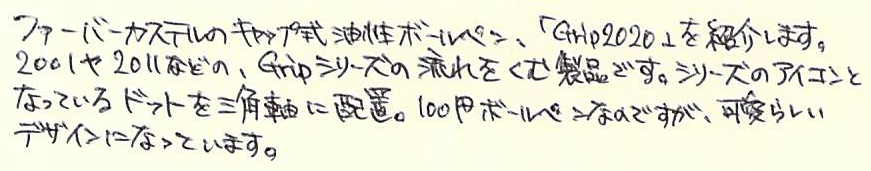 ファーバーカステルのキャップ式油性ボールペン、「Grip2020」を紹介します。
2001や2011などの、Gripシリーズの流れをくむ製品です。シリーズのアイコンと
なっているドットを三角軸に配置。100円ボールペンなのですが、可愛らしい
デザインになっています。